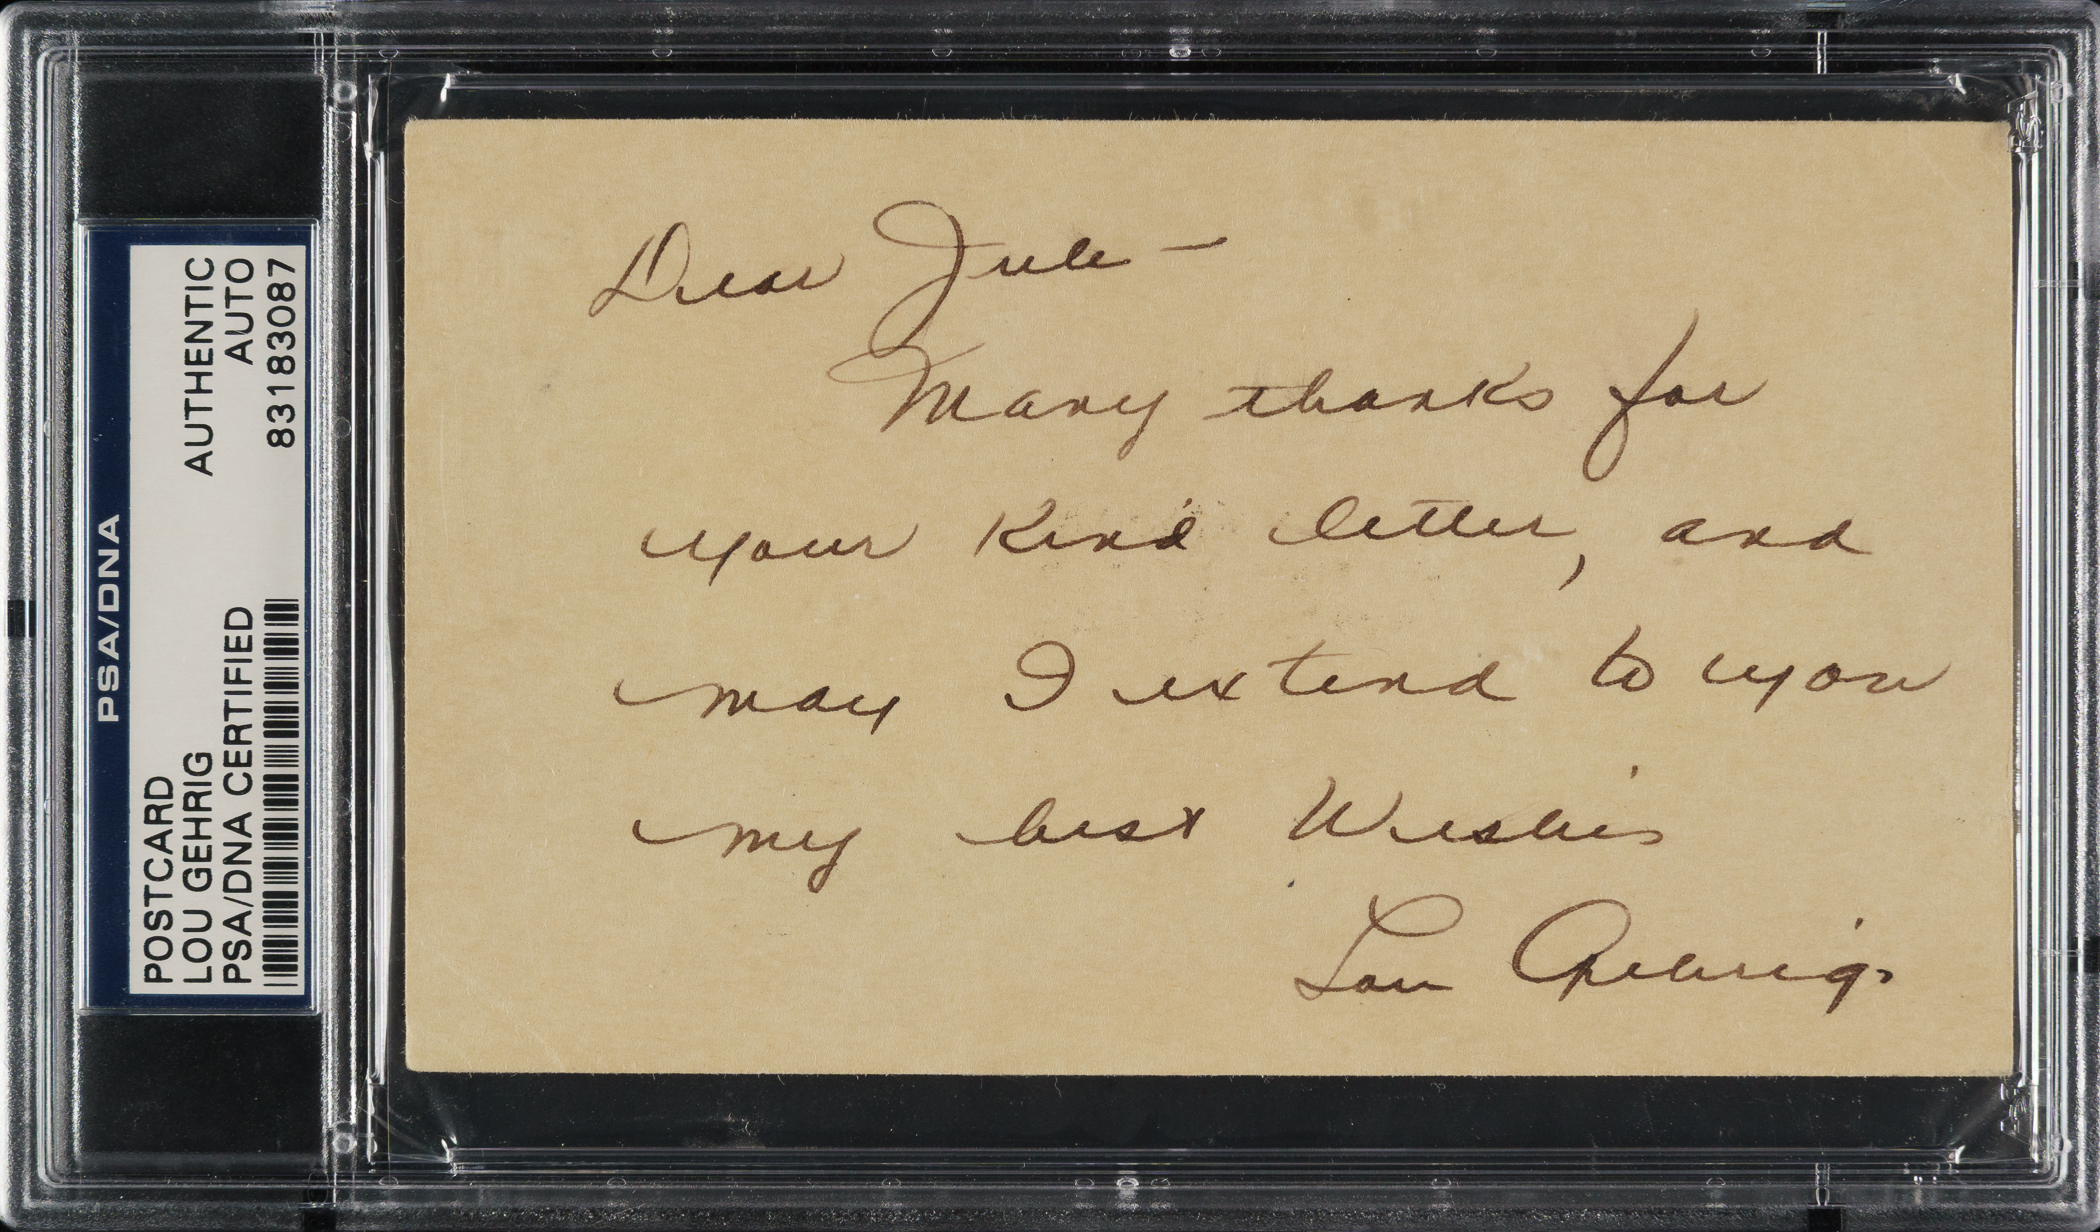 PSA/DNA
POSTCARD AUTHENTIC
LOU GEHRIG AUTO
PSA/DNA CERTIFIED 83183087
Dear Jule —
Many thanks for
your kind letter, and
may I extend to you
my best Wishes
Lou Gehrig.